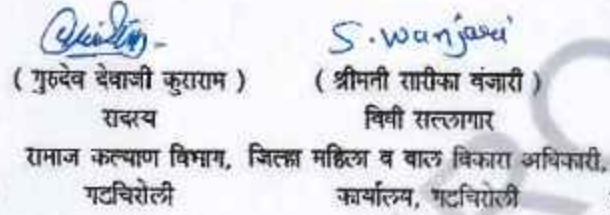 S. wanjari
( गुरुदेव देवाजी कुराराम ) ( श्रीमती सारीका वंजारी )
सदस्य विधी सल्लागार
समाज कल्याण विभाग, जिल्हा महिला व बाल विकास अधिकारी,
गडचिरोली कार्यालय, गडचिरोली